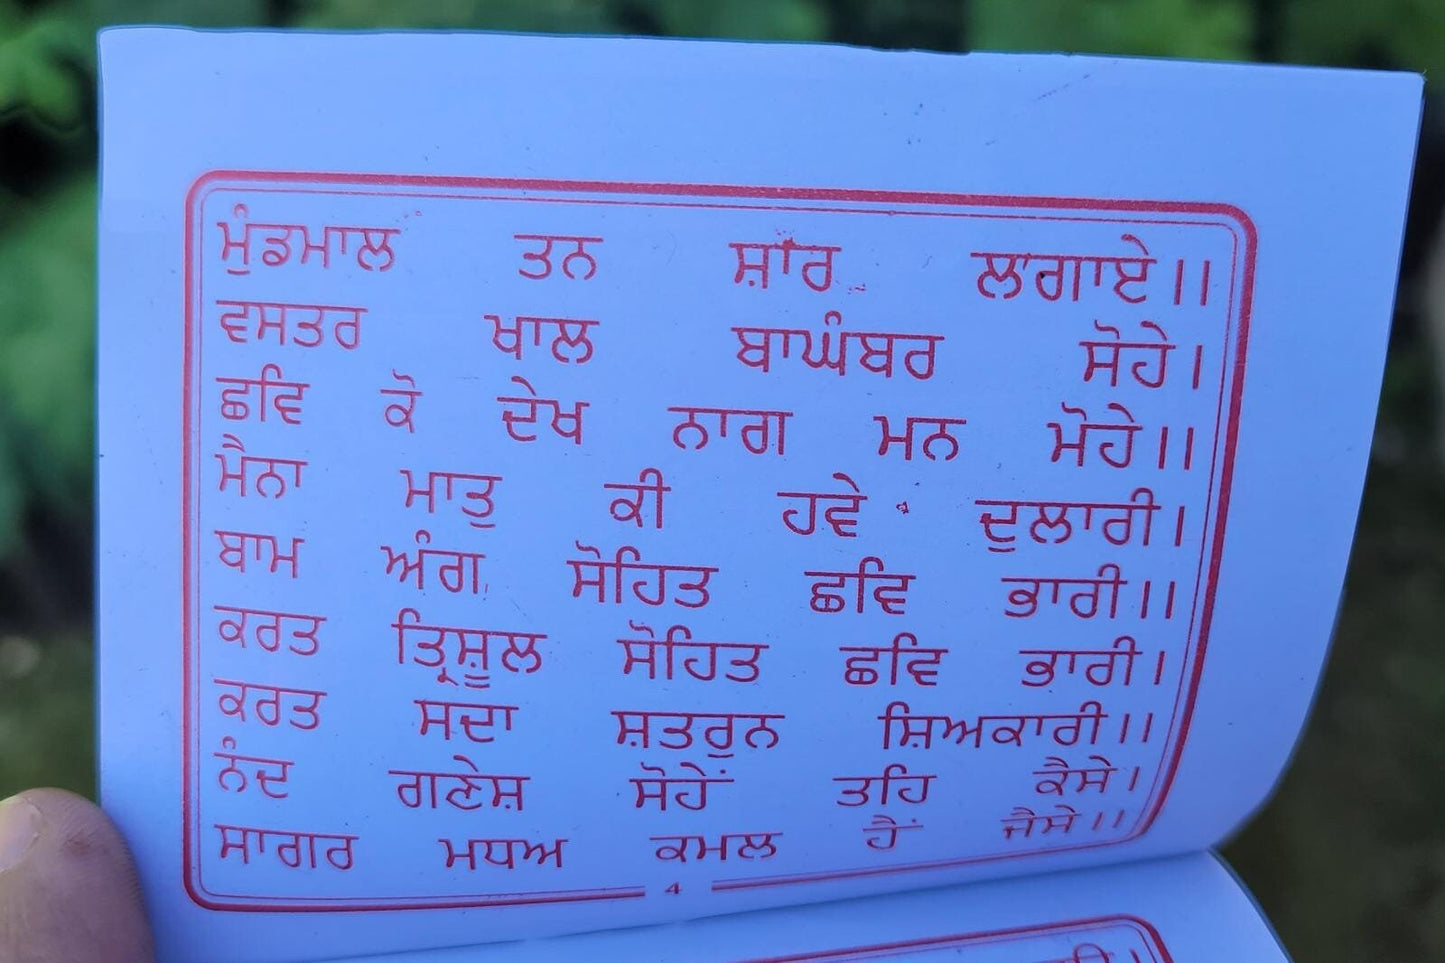 ਮੁੰਡਮਾਲ ਤਨ ਸ਼ਾਰ ਲਾਗਾਏ।।
ਵਸਤਰ ਖਾਲ ਬਾਘੰਬਰ ਸੋਹੇ।
ਛਵਿ ਕੋ ਦੇਖ ਨਾਗ ਮਨ ਮੋਹੇ।।
ਮੈਨਾ ਮਾਤੁ ਕੀ ਹਵੇ ਦੁਲਾਰੀ।
ਬਾਮ ਅੰਗ ਸੋਹਿਤ ਛਵਿ ਭਾਰੀ।।
ਕਰਤ ਤ੍ਰਿਸ਼ੂਲ ਸੋਹਿਤ ਛਵਿ ਭਾਰੀ।
ਕਰਤ ਸਦਾ ਸ਼ਤਰੁਨ ਸ਼ਿਅਕਾਰੀ।।
ਨੰਦ ਗਣੇਸ਼ ਸੋਹੇਂ ਤਹਿ ਕੈਸੇ।
ਸਾਗਰ ਮਧਅ ਕਮਲ ਹੈਂ ਜੈਸੇ।।
4